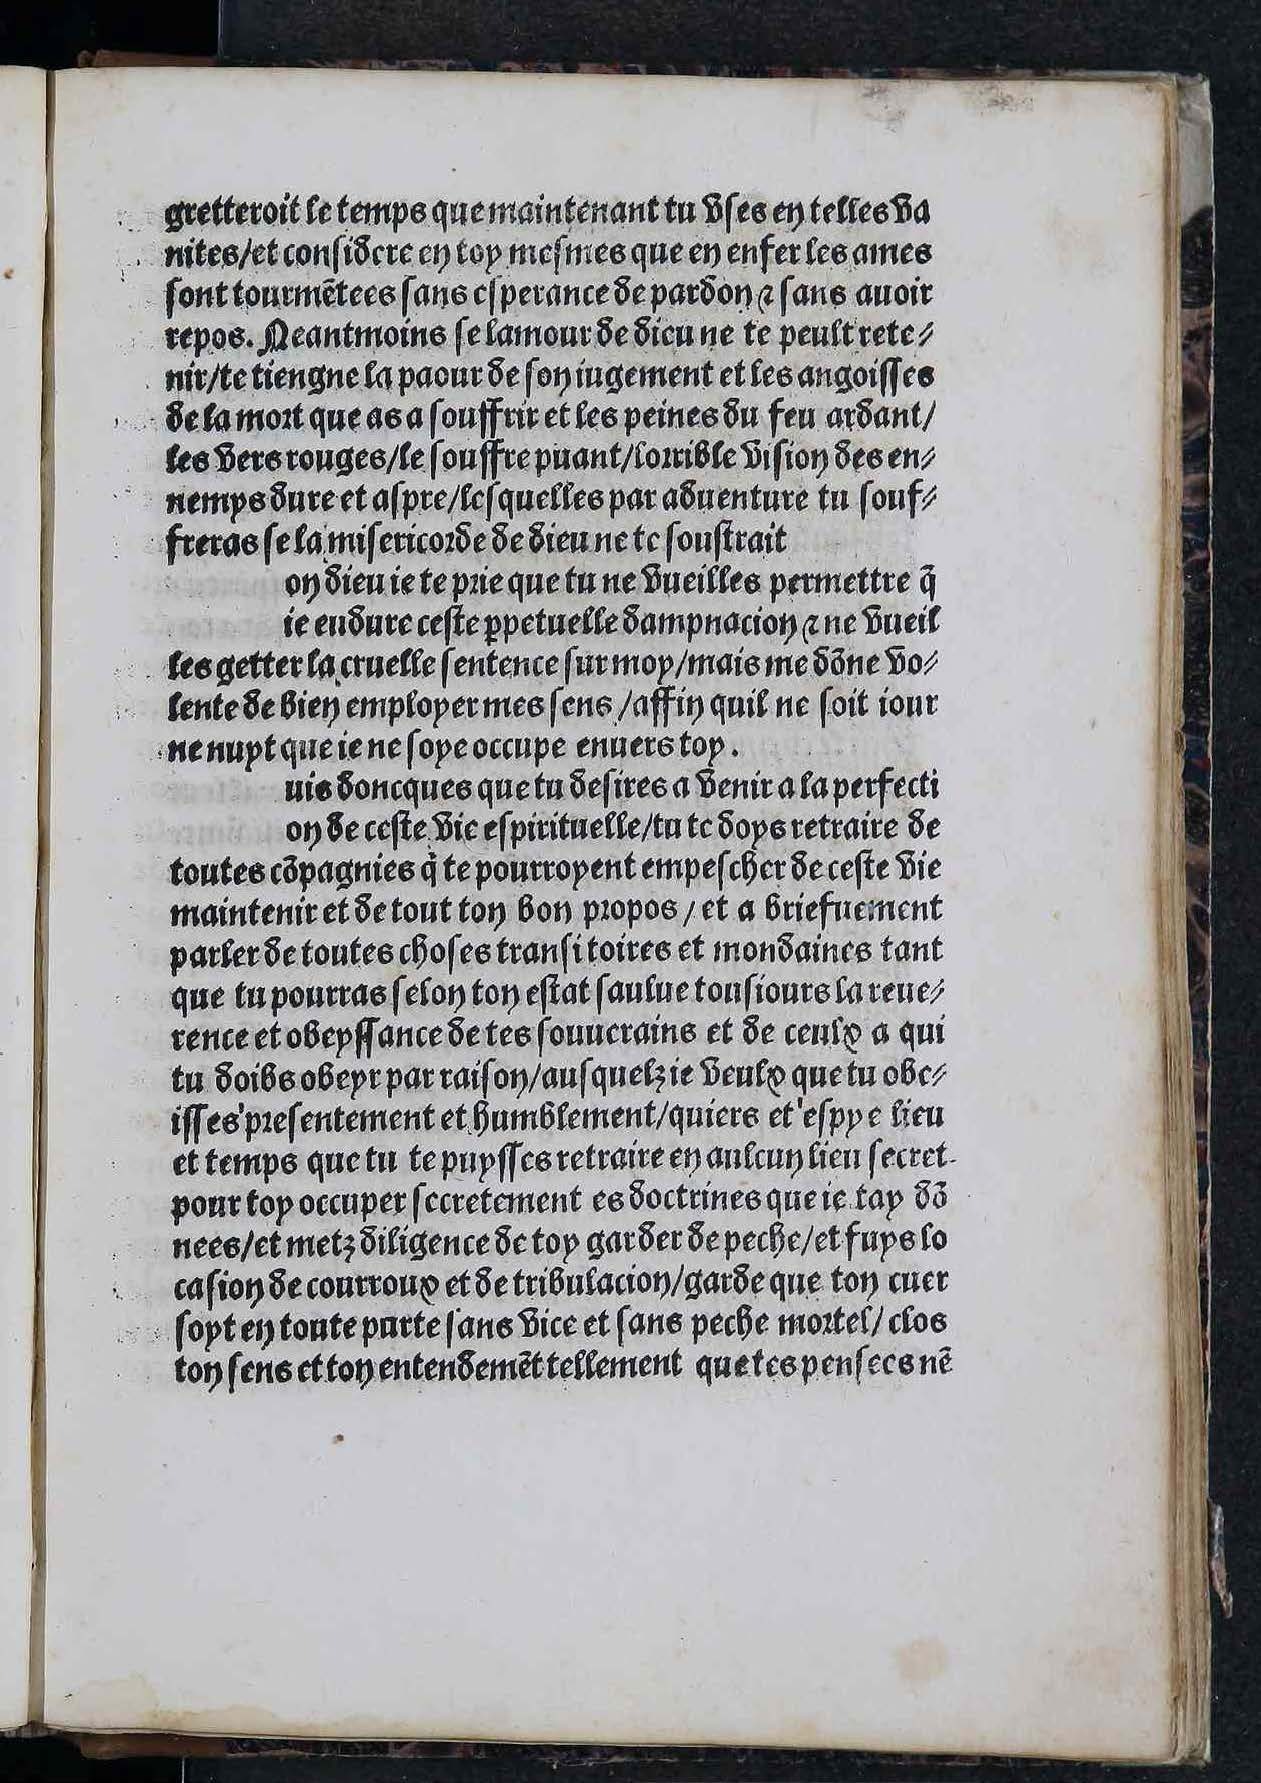 gretteroit le temps que maintenant tu vſes en telles va
nites/et conſidere en toy meſmes que en enfer les ames
ſont tourmētees ſans eſperance de pardon ⁊ ſans auoir
repos. Neantmoins ſe lamour de dieu ne te peult rete⸗
nir/te tiengne la paour de ſon iugement et les angoiſſes
de la mort que as a ſouffrir et les peines du feu ardant/
les vers rouges/le ſouffre puant/lorrible viſion des en⸗
nemys dure et aſpre/leſquelles par aduenture tu ſouf⸗
freras ſe la miſericorde de dieu ne te ſouſtrait
on dieu ie te prie que tu ne vueilles permettre q̄
ie endure ceſte ꝑpetuelle dampnacion ⁊ ne vueil
les getter la cruelle ſentence ſur moy/mais me dōne vo⸗
lente de bien employer mes ſens /affin quil ne ſoit iour
ne nuyt que ie ne ſoye occupe enuers toy.
uis doncques que tu deſires a venir a la perfecti
on de ceſte vie eſpirituelle/tu te doys retraire de
toutes cōpagnies q̄ te pourroyent empeſcher de ceſte vie
maintenir et de tout ton bon propos/ et a briefuement
parler de toutes choſes tranſitoires et mondaines tant
que tu pourras ſelon ton eſtat ſaulue touſiours la reue⸗
rence et obeyſſance de tes ſouuerains et de ceulx a qui
tu doibs obeyr par raiſon/auſquelz ie veulx que tu obe⸗
iſſes preſentement et humblement/quiers et eſpye lieu
et temps que tu te puyſſes retraire en aulcun lieu ſecret
pour toy occuper ſecretement es doctrines que ie tay dō
nees/et metz diligence de toy garder de peche/et fuys lo
caſion de courroux et de tribulacion/garde que ton cuer
ſoyt en toute purte ſans vice et ſans peche mortel/ clos
ton ſens et ton entendemēt tellement que tes penſees nē